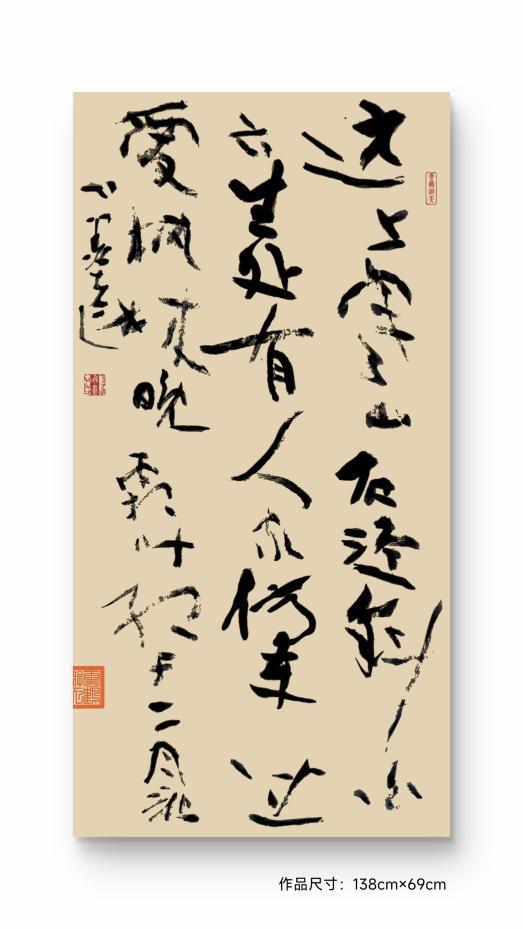 远上寒山石迳斜白
云生处有人家停车坐
愛枫林晚霜叶红于二月花
作品尺寸：138cm×69cm